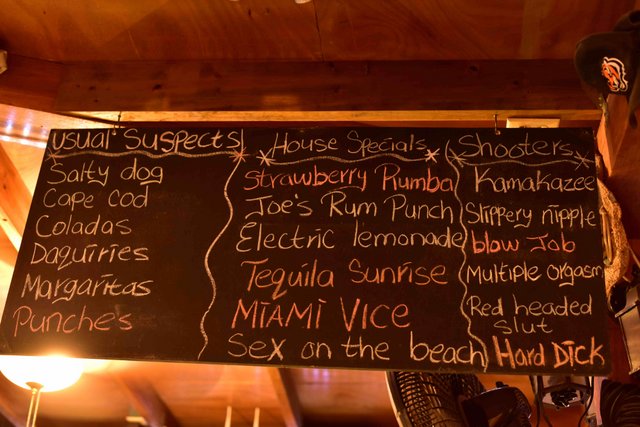 Usual Suspects
Salty dog
Cape Cod
Coladas
Daquiries
Margaritas
Punches
House Specials
Strawberry Rumba
Joe's Rum Punch
Electric lemonade
Tequila Sunrise
MIAMI VICE
Sex on the beach
Shooters
Kamakazee
Slippery nipple
blow Job
Multiple orgasm
Red headed
Slut
Hard Dick